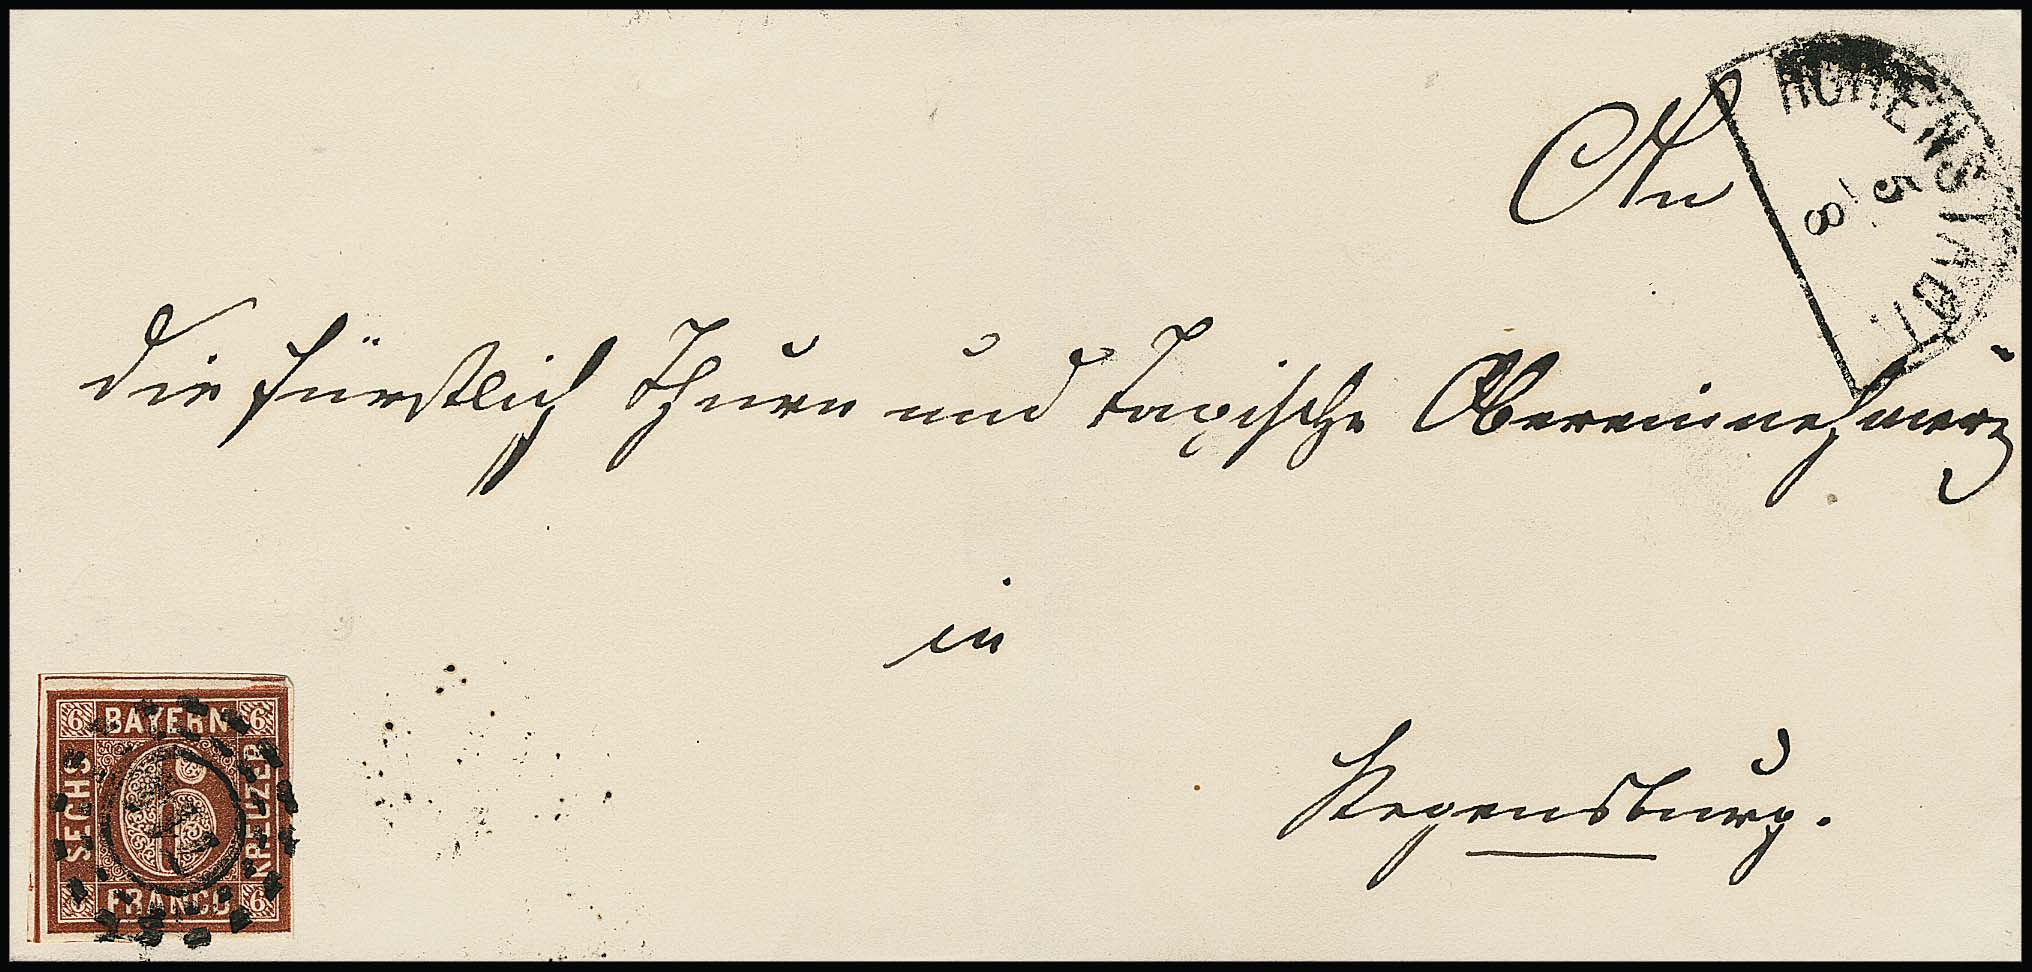 HOHENSTADT.
5
/8
An
die fürstlich Thurn und Taxische Obereinnehmerei
in
Regensburg.
6 BAYERN 6
SECHS
6
KREUZER
6 FRANCO 6